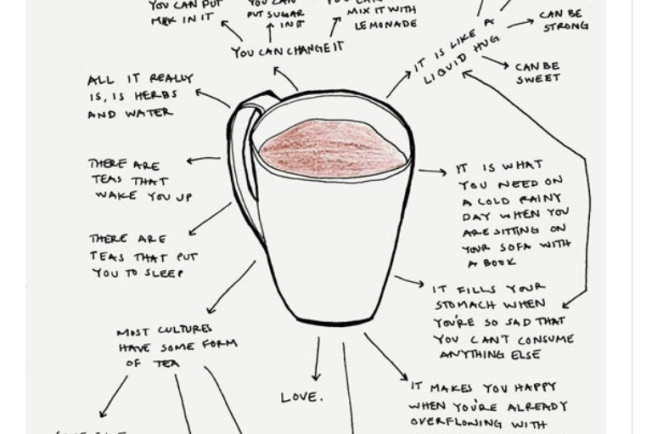 YOU CAN PUT
MILK IN IT
YOU CAN
PUT SUGAR
IN IT
YOU CAN
MIX IT WITH
LEMONADE
YOU CAN CHANGE IT
IT IS LIKE A
LIQUID HUG
CAN BE
STRONG
CAN BE
SWEET
ALL IT REALLY
IS, IS HERBS
AND WATER
THERE ARE
TEAS THAT
WAKE YOU UP
THERE ARE
TEAS THAT PUT
YOU TO SLEEP
MOST CULTURES
HAVE SOME FORM
OF TEA
IT IS WHAT
YOU NEED ON
A COLD RAINY
DAY WHEN YOU
ARE SITTING ON
YOUR SOFA WITH
A BOOK
IT FILLS YOUR
STOMACH WHEN
YOU'RE SO SAD THAT
YOU CAN'T CONSUME
ANYTHING ELSE
LOVE.
IT MAKES YOU HAPPY
WHEN YOU'RE ALREADY
OVERFLOWING WITH